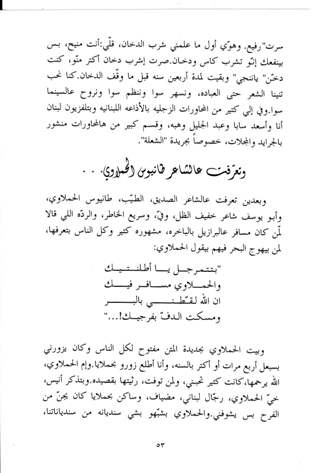 سرت" رفيع. وهوّي أول ما علمني شرب الدخان، قلّي: أنت منيح، بس
بينفعك إنّو تشرب كاس ودخان. صرت إشرب دخان أكثر منّو، كنت
دخّن" يانتجي" وبقيت لمدة أربعين سنه قبل ما وقّف الدخان. كنا نحب
تنينا الشعر حتى العباده، ونسهر سوا وننظم سوا ونروح عالسينما
سوا. وفي إلي كتير من المحاورات الزجليه بالأذاعه اللبنانيه وبتلفزيون لبنان
أنا وأسعد سابا وعبد الجليل وهبه، وقسم كبير من هالمحاورات منشور
بالجرايد والمجلات، خصوصاً بجريدة "الشعلة".
وتعرّفت عالشاعر طانيوس الحملاوي. . .
وبعدين تعرفت عالشاعر الصديق، الطيّب، طانيوس الحملاوي،
وأبو يوسف شاعر خفيف الظل، وفيّ، وسريع الخاطر، والردّه اللي قالا
لمّن كان مسافر عالبرازيل بالباخره، مشهوره كتير وكل الناس بتعرفها،
لمن بيهوج البحر فيهم بيقول الحملاوي:
"بتتمرجل يا أطلنتيك
والحملاوي مسافر فيك
ان الله لقّطني بالبر
ومسكت الدفّ بفرجيك!..."
وبيت الحملاوي بجديدة المتن مفتوح لكل الناس وكان يزورني
بسبعل أربع مرات أو أكتر بالسنه، وأنا أطلع زورو بحملايا. وإم الحملاوي،
الله يرحمها، كانت كتير تحبني، ولمن توفت، رثيتها بقصيده. وبتذكر أنيس،
خيّ الحملاوي، رجّال لبناني، مضياف، وساكن بحملايا كان يجنّ من
الفرح بس يشوفني. والحملاوي بشبّهو بشي سنديانه من سندياناتنا،
٥٣